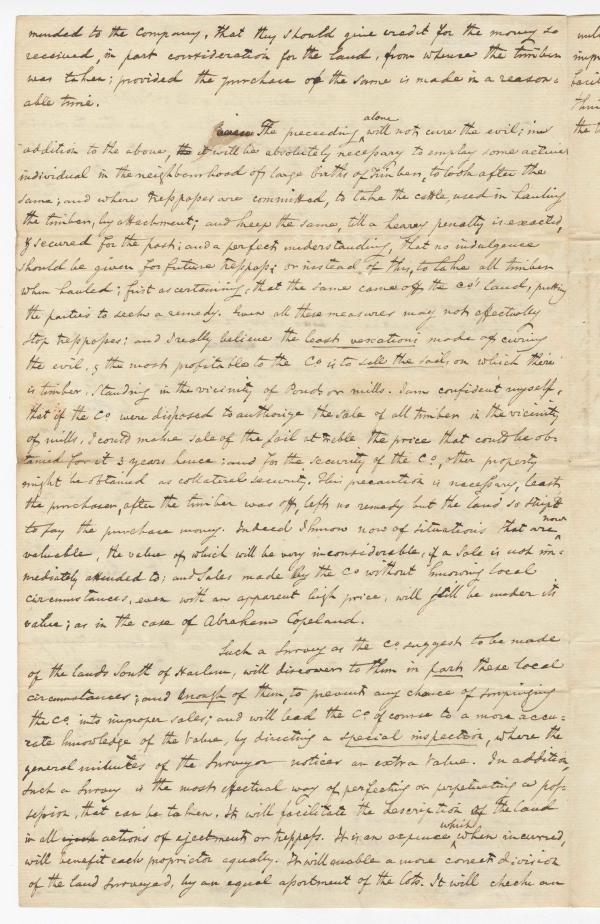 mended to the Company, that they should give credit for the money so
received, in part consideration for the land, from whence the timber
was taken; provided the purchase of the same is made in a reason=
able time.
The preceeding alone will not cure the evil; in
addition to the above, it will be absolutely necessary to employ some active
individual in the neighbourhood of large births of timber, to look after the
same; and where tresspasses are committed, to take the cattle, used in hauling
the timber, by attachment; and keep the same, till a heavy penalty is exacted,
& secured for the past; and a perfect understanding, that no indulgence
should be given for future tresspass; or instead of this, to take all timber
when hauled; first ascertaining, that the same came off the Co's land, putting
the parties to seek a remedy. Even all these measures may not effectually
stop tresspasses; and I really believe the least vexatious mode of curing
the evil, & the most profitable to the Co is to sell the soil, on which there
is timber, standing in the vicinity of Ponds or mills. I am confident myself,
that if the Co were disposed to authorize the sale of all timber in the vicinity
of mills, I could make sale of the soil at treble the price that could be ob-
tained for it 3 years hence; and for the security of the Co, other property
might be obtained as collateral security. This precaution is necessary, least
the purchaser, after the timber was off, left no remedy but the land so stript
to pay the purchase money. Indeed I know now of situations that are now
valuable, the value of which will be very inconsiderable, if a sale is not im-
mediately attended to; and sales made by the Co without knowing local
circumstances, even with an apparent high price, will still be under its
value; as in the case of Abraham Copeland.
Such a Survey as the Co suggest to be made
of the lands South of Harlem, will discover to them in part these local
circumstances; and enough of them, to prevent any chance of surprizing
the Co. into improper sales; and will lead the Co of course to a more accu=
rate knowledge of the value, by directing a special inspection, where the
general minutes of the Surveyor notices an extra value. In addition,
such a Survey is the most effectual way of perfecting or perpetuating a pos=
session, that can be taken. It will facilitate the description of the land
in all such actions of ejectment or tresspass. It is an expence which, when incurred,
will benefit each proprietor equally. It will enable a more correct division
of the land surveyed, by an equal apportment of the lots. It will check an